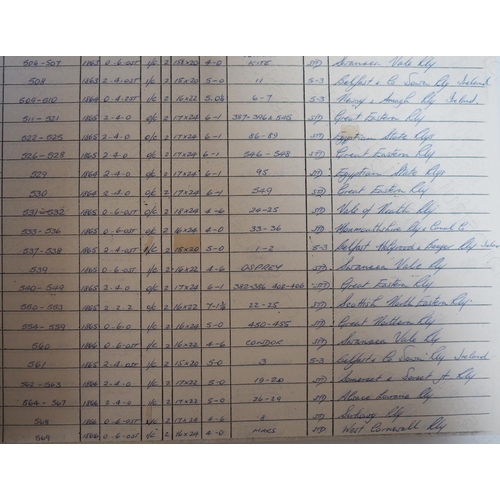 506-507 1863 0-6-0ST I/C 2 15x20 4-0 KITE STD Swansea Vale Rly
508 1863 2-4-0ST I/C 2 15x20 5-0 11 5-3 Belfast & Co Down Rly Ireland
509-510 1864 0-4-2ST I/C 2 16x22 5.0½ 6-7 5-3 Newry & Armagh Rly Ireland
511-521 1865 2-4-0 O/C 2 17x24 6-1 STD Great Eastern Rly
522-525 1865 2-4-0 O/C 2 17x24 6-1 86-89 STD Egyptian State Rlys
526-528 1865 2-4-0 O/C 2 17x24 6-1 546-548 STD Great Eastern Rly
529 1864 2-4-0 O/C 2 17x24 6-1 95 STD Egyptian State Rlys
530 1864 2-4-0 O/C 2 17x24 6-1 549 STD Great Eastern Rly
531-532 1865 0-6-0ST 2 18x24 4-6 24-25 STD Vale of Neath Rly
533-536 1865 0-6-0ST 2 16x24 4-0 33-36 STD Monmouthshire Rly & Canal Co
537-538 1865 2-4-0ST I/C 2 15x20 5-0 1-2 5-3 Belfast Holywood & Bangor Rly
539 1865 0-6-0ST I/C 2 16x22 4-6 OSPREY STD Swansea Vale Rly
540-549 1865 2-4-0 O/C 2 17x24 6-1 STD Great Eastern Rly
550-553 1865 2-2-2 2 16x22 7-1½ 22-25 STD Scottish North Eastern Rly
554-559 1865 0-6-0 I/C 2 16x24 5-0 450-455 STD Great Northern Rly
560 1866 0-6-0ST I/C 2 16x22 4-6 CONDOR STD Swansea Vale Rly
561 1865 2-4-0ST I/C 2 15x20 5-0 3 5-3 Belfast & Co Down Rly Ireland
562-563 1866 2-4-0 I/C 2 17x22 5-0 19-20 STD Somerset & Dorset Jt Rly
564-567 1866 2-4-0 I/C 2 17x22 5-0 26-29 STD Alsace Lorraine Rly
568 1866 0-6-0ST I/C 2 17x24 4-6 2 STD Sirhowy Rly
569 1866 0-6-0ST I/C 2 16x24 4-0 MARS STD West Cornwall Rly